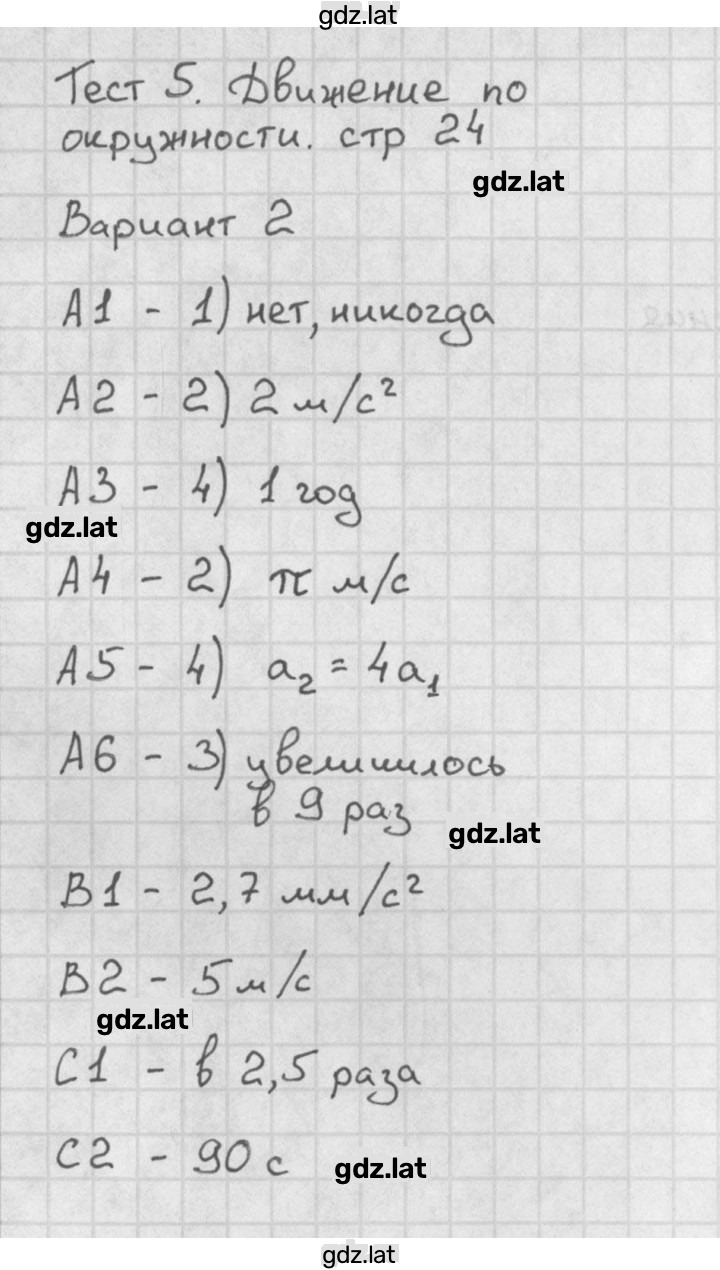 gdz.lat
Тест 5. Движение по
окружности. стр 24
gdz.lat
Вариант 2
А1 - 1) нет, никогда
А2 - 2) 2 м/с²
А3 - 4) 1 год
gdz.lat
А4 - 2) π м/с
А5 - 4) a₂ = 4a₁
А6 - 3) увеличилось
в 9 раз
gdz.lat
В1 - 2,7 мм/с²
В2 - 5 м/с
gdz.lat
С1 - в 2,5 раза
С2 - 90 с
gdz.lat
gdz.lat